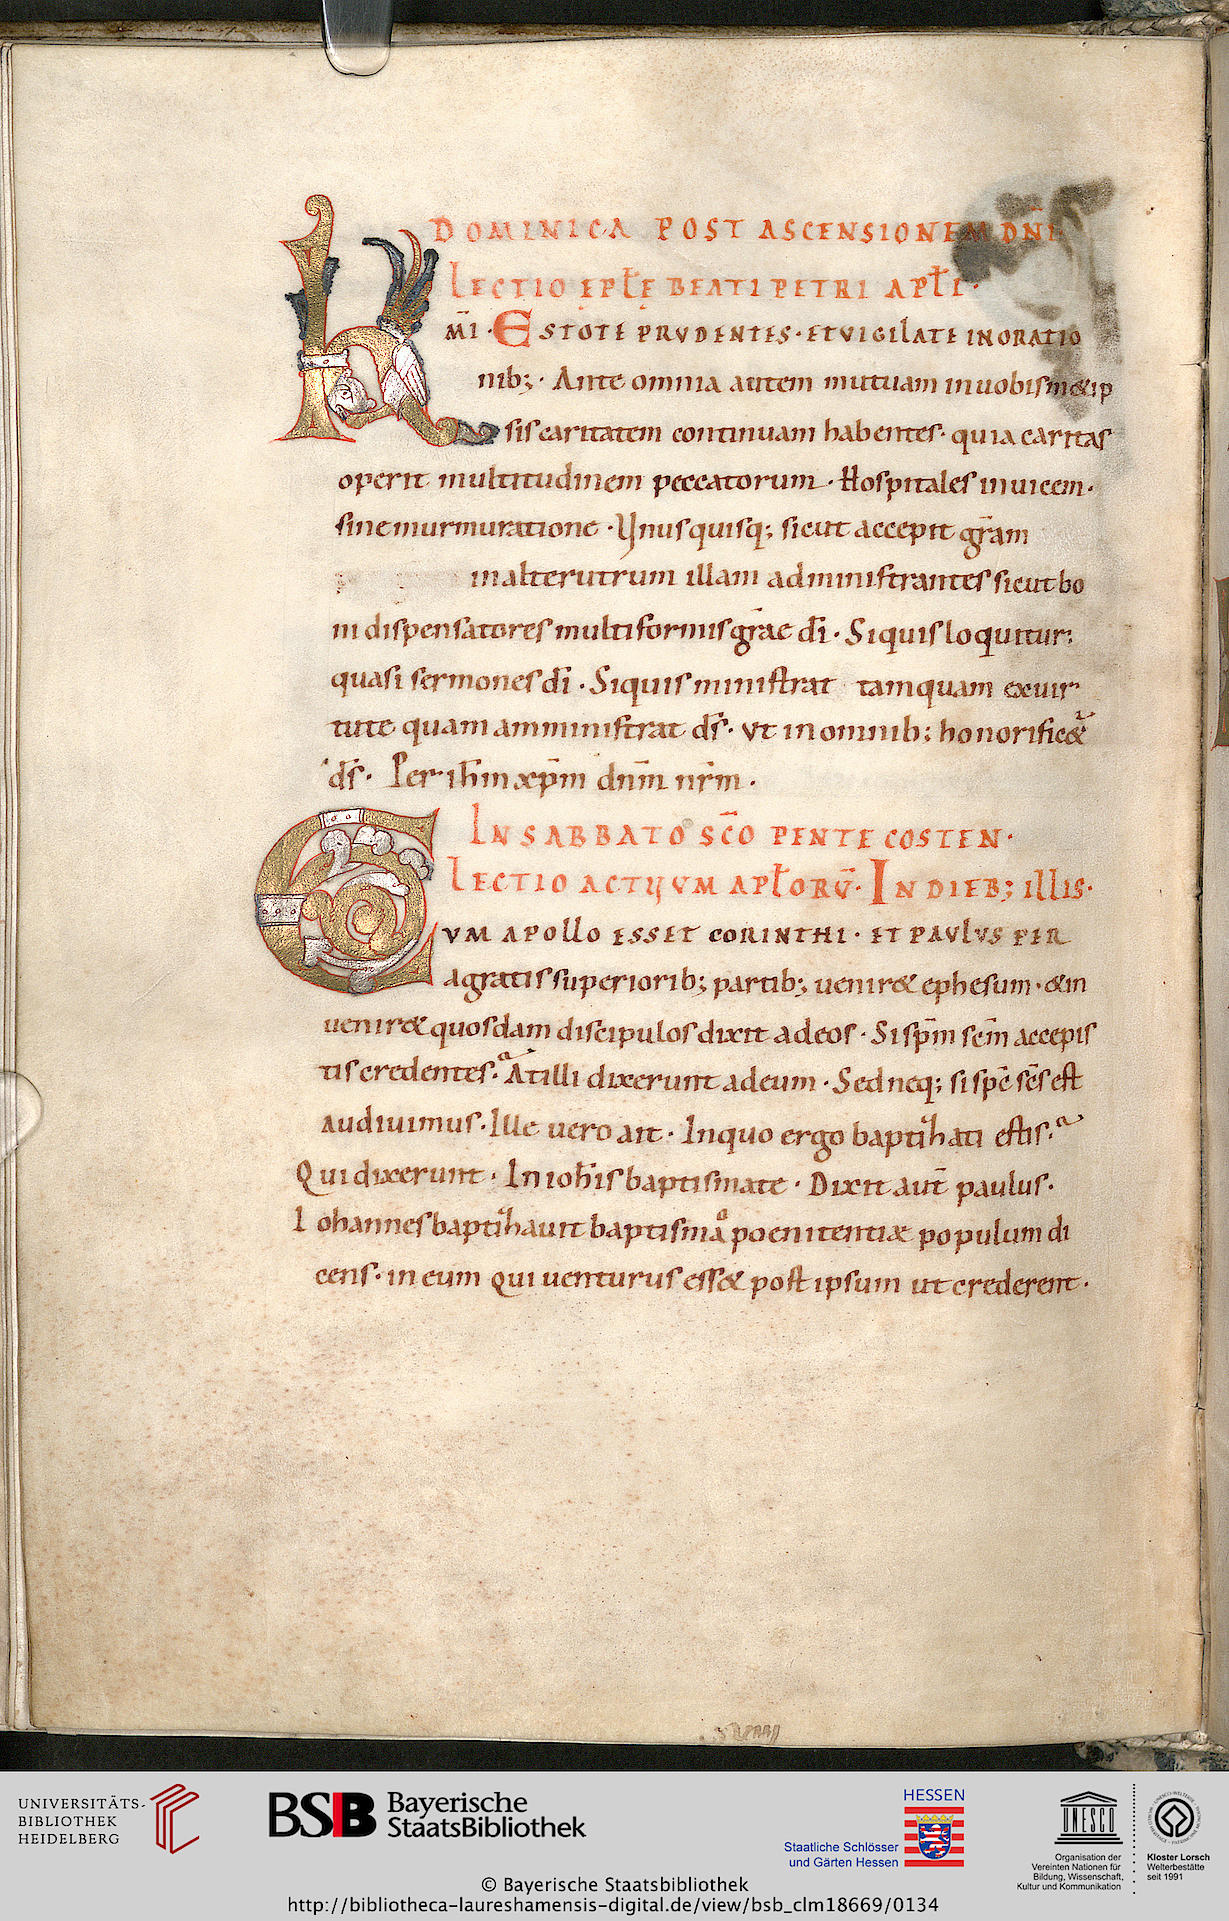 DOMINICA POST ASCENSIONEM DN̄I
LECTIO EPL̄Ę BEATI PETRI APL̄I·
K M̄I· ESTOTE PRVDENTES· ET VIGILATE IN ORATIO
nib;· Ante omnia autem mutuam in uobism&ip
sis caritatem continuam habentes· quia caritas
operit multitudinem peccatorum· Hospitales inuicem·
sine murmuratione· Vnusquisq; sicut accepit gr̄am
in alterutrum illam administrantes sicut bo
ni dispensatores multiformis gr̄ae dī· Si quis loquitur;
quasi sermones dī· Si quis ministrat tamquam ex uir
tute quam amministrat dс̄· ut in omnib; honorific&
ds̄· Per ih̄m xp̄m dn̄m nr̄m·
IN SABBATO SC̄O PENTECOSTEN·
LECTIO ACTVVM APL̄ORV̄· IN DIEB; ILLIS·
CVM APOLLO ESSET CORINTHI· ET PAVLVS PER
agratis superiorib; partib; uenir& ephesum· & in
uenir& quosdam discipulos dixit ad eos· Si sp̄m sc̄m accepis
tis credentes· At illi dixerunt ad eum· Sed neq; si sp̄c sc̄s est
audiuimus· Ille uero ait· In quo ergo baptihati estis·
Qui dixerunt· In ioh̄is baptismate· Dixit aut̄ paulus·
Iohannes baptihauit baptisma poenitentiae populum di
cens· in eum qui uenturus ess& post ipsum ut crederent·
UNIVERSITÄTS-
BIBLIOTHEK
HEIDELBERG
BSB Bayerische
StaatsBibliothek
HESSEN
Staatliche Schlösser
und Gärten Hessen
UNESCO
Organisation der
Vereinten Nationen für
Bildung, Wissenschaft,
Kultur und Kommunikation
Kloster Lorsch
Welterbestätte
seit 1991
© Bayerische Staatsbibliothek
http://bibliotheca-laureshamensis-digital.de/view/bsb_clm18669/0134